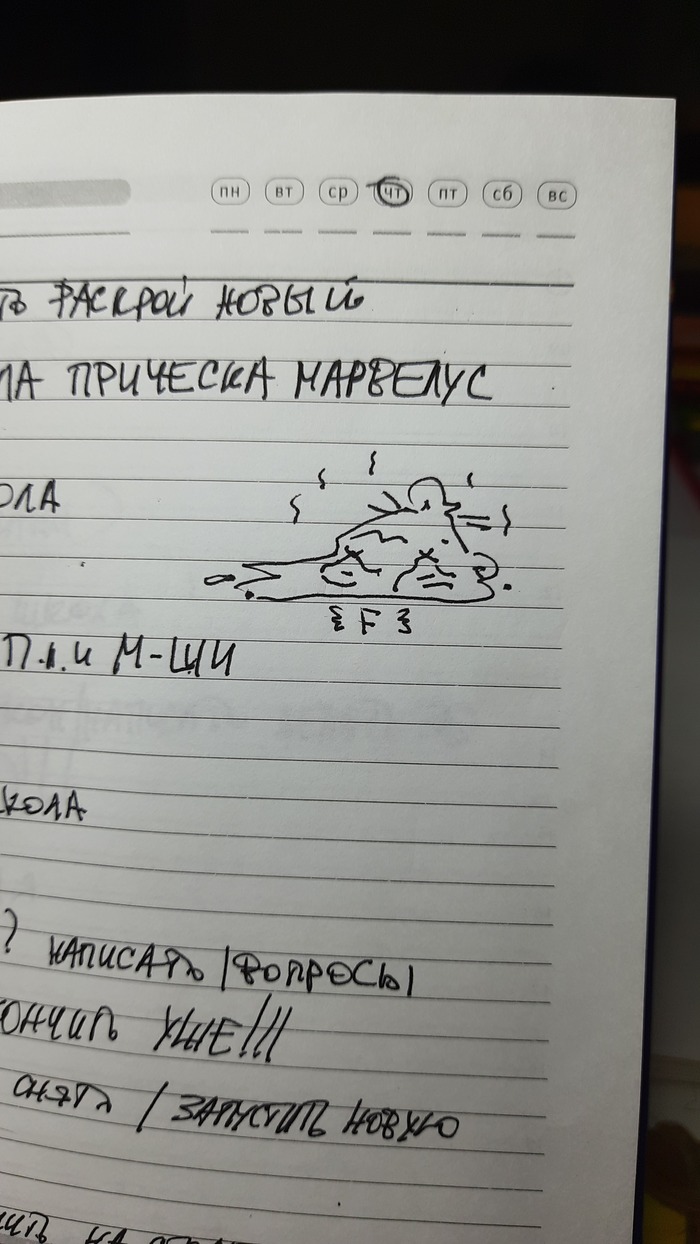 пн вт ср чт пт сб вс
РАСКРОЙ НОВЫЙ
ПРИЧЕСКА МАРВЕЛУС
ОЛА
{ F }
П.1.И М-ШИ
КОЛА
? НАПИСАТЬ / ВОПРОСЫ
ОНЧИТЬ УЖЕ!!!
СНЯТЬ / ЗАПУСТИТЬ НОВУЮ
ИТЬ НА